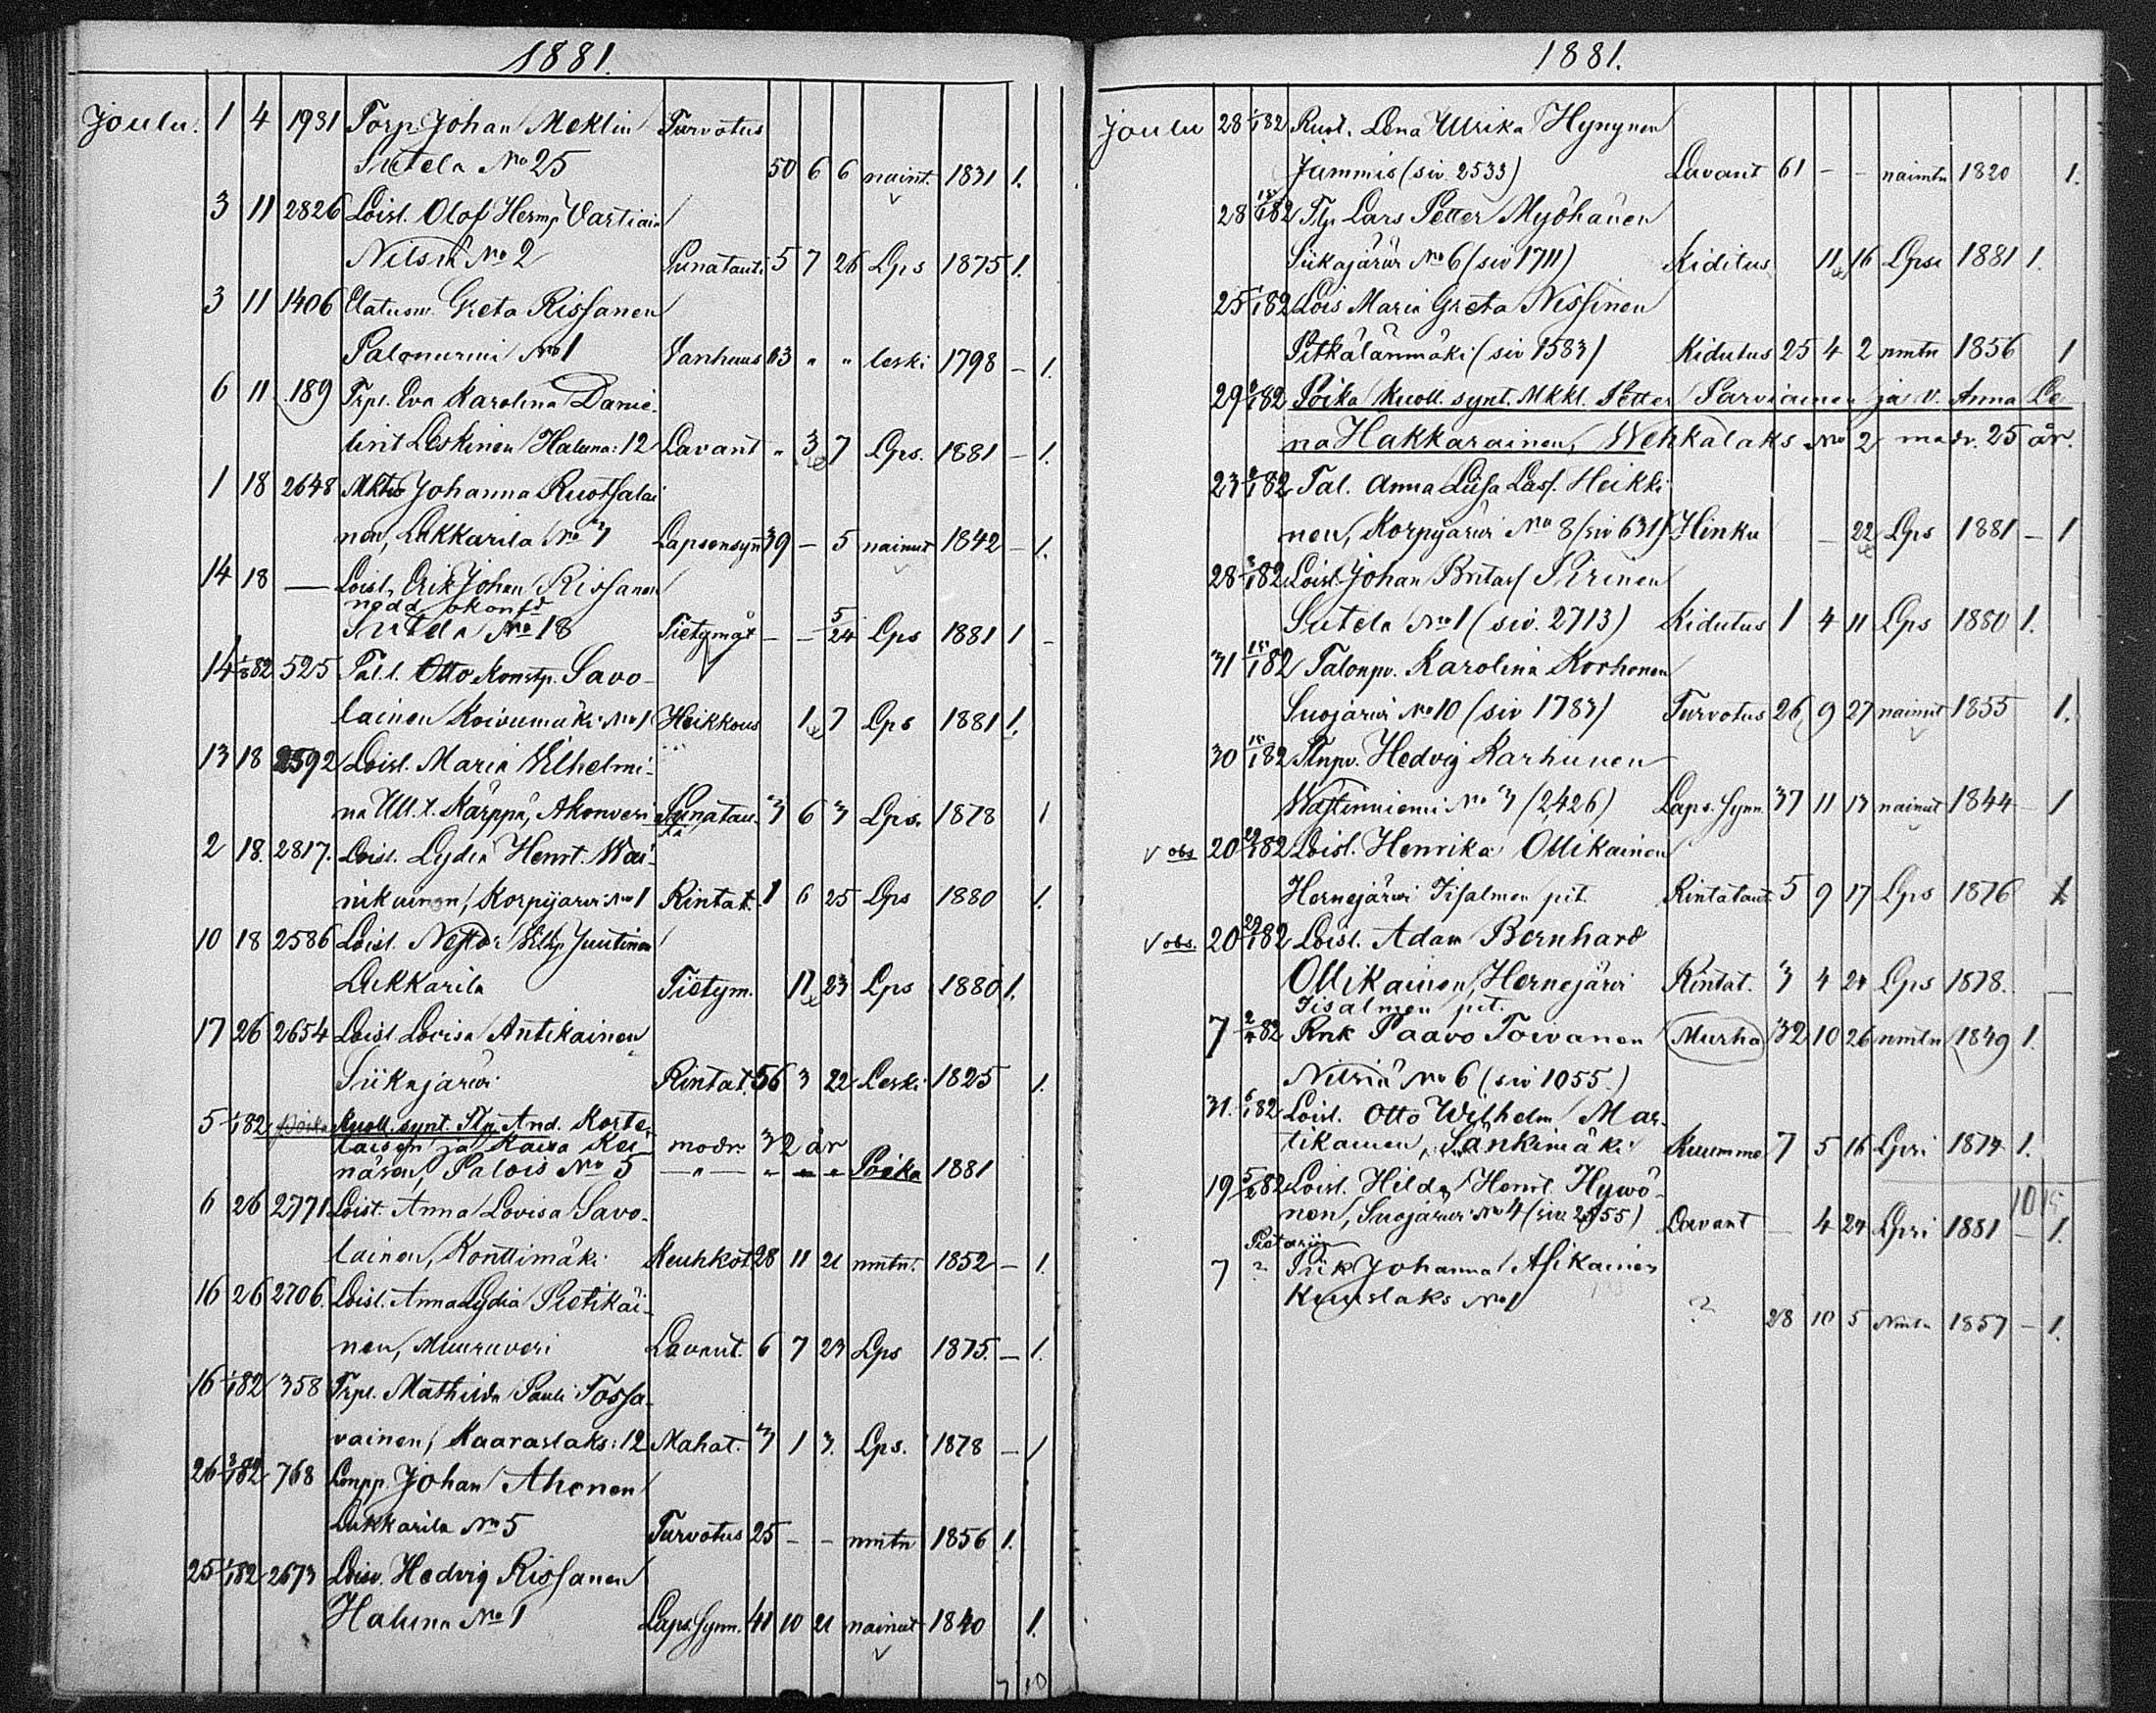 1881.
Joulu. 1 4 1931 Torp. Johan Meklin Turvotus
Sutela No 25 50 6 6 naint. 1831 1.
3 11 2826 Loisl. Olof Hermp Vartiain
Nilsiä No 2 Punataut. 5 7 26 Lps 1875 1.
3 11 1406 Elatusm. Greta Rissanen
Palonurmi No 1 Vanhuus 83 " " leski 1798 – 1.
6 11 189 Trpl. Eva Karolina Danie-
lint Leskinen Haluna: 12 Lavant " 3 7 Lps. 1881 – 1.
1 18 2648 Johanna Ruotsalai
nen, Lukkarila No 7 Lapsensyn 39 – 5 nainut 1842 – 1.
14 18 — Loisl. Erik Johan Rissanen
nödd okonfd
Sutela No 18 Tietymät – – 5/24 Lps 1881 1 –
14 1/182 525 Tal.l. Otto Konstp. Savo-
lainen Koivumäki No 1 Heikkous 1 7 Lps 1881 1.
13 18 2592 Loisl. Maria Wilhelmi-
na Ull.t. Kärppä, Akonveri Punatau- 3 6 3 Lps. 1878 1
ta
2 18. 2817. Loisl. Lydia Henrt. Wai-
nikainen, Korpijärvi No 1 Rintat. 1 6 25 Lps 1880 1.
10 18 2586 Loisl. Nestor Wilhp Juutinen
Lukkarila Tietym. 11 23 Lps 1880 1.
17 26 2654 Loisl. Lovisa Antikainen
Siikajärvi Rintat. 56 3 22 Leski 1825 1.
5 1/182 poika Kuoll. synt. And. Korte-
laisen ja Kaisa Kei- modr. 32 år
näsen, Palois No 5 — " — " " " Poika 1881
6 26 2771 Loist. Anna Lovisa Savo-
lainen, Konttimäki Keuhkot. 28 11 21 nmtn. 1852 – 1.
16 26 2706. Loisl. Anna Lydia Pietikäi-
nen, Muuruveri Lavant. 6 7 23 Lps 1875. – 1.
16 1/182 358 Trpl. Mathilda Pauli Tossa-
vainen, Kaaraslaks: 12 Mahat. 3 1 3. Lps. 1878 – 1
26 3/182 768 Lmpp. Johan Ahonen
Lukkarila No 5 Turvotus 25 – – nmtn 1856 1.
25 1/182 2673 Loisv. Hedvig Rissanen
Haluna No 1 Laps.synn. 41 10 21 nainut 1840 1.
7 10
1881.
Joulu 28 1/182 Ruot. Lena Ullrika Hynynen
Jummis (siv. 2533) Lavant 61 – – naimtn 1820 1.
28 15/182 Tlp. Lars Petter Myöhänen
Siikajärvi No 6 (siv 1711) Kiditus 11 16 Lpsi 1881 1.
25 1/182 Lois Maria Greta Nissinen
Pitkälänmäki (siv 1583) Kidutus 25 4 2 nmtn 1856 1
29 8/182 Poika Kuoll. synt. Mkkl. Petter Parviainen ja v. Anna Le
na Hakkarainen, Wehkalaks No 2 modr. 25 år.
23 8/182 Tal. Anna Liisa Lass. Heikki
nen, Korpijärvi No 8 (siv 631) Hinku – 22 Lps 1881 – 1
28 8/182 Loisl. Johan Pirinen
Sutela No 1 (siv. 2713) Kidutus 1 4 11 Lps 1880 1.
31 15/182 Talonpv. Karolina Korhonen
Suojärvi No 10 (siv 1783) Turvotus 26 9 27 nainut 1855 1.
30 15/182 Tlnpv. Hedvig Karhunen
Wastinniemi No 3 (2426) Laps. synn. 37 11 13 nainut 1844 1
V obs. 20 29/182 Loisl. Henrika Ollikainen
Hernejärvi Iisalmen pit. Rintataut. 5 9 17 Lps 1876 1
V obs. 20 29/182 Loisl. Adam Bernhard
Ollikainen, Hernejärvi Rintat. 3 4 24 Lps 1878.
Iisalmen pit.
7 2/482 Rnk Paavo Toivanen Murha 32 10 26 nmtn 1849 1.
Nilsiä No 6 (siv 1055.)
31. 6/182 Loisl. Otto Wilhelm Mar-
tikainen, Länkimäki Kuumme 7 5 16 Lpsi 1874 1.
19 5/682 Loisl. Hilda Henrl. Hyvö- 10 15
nen, Suojärvi No 4 Lavant – 4 24 Lpsi 1881 – 1.
Pietariin
7 ? Piik Johanna Asikainen
Kuuslaks No 1 ? 28 10 5 Nmtn 1857 – 1.